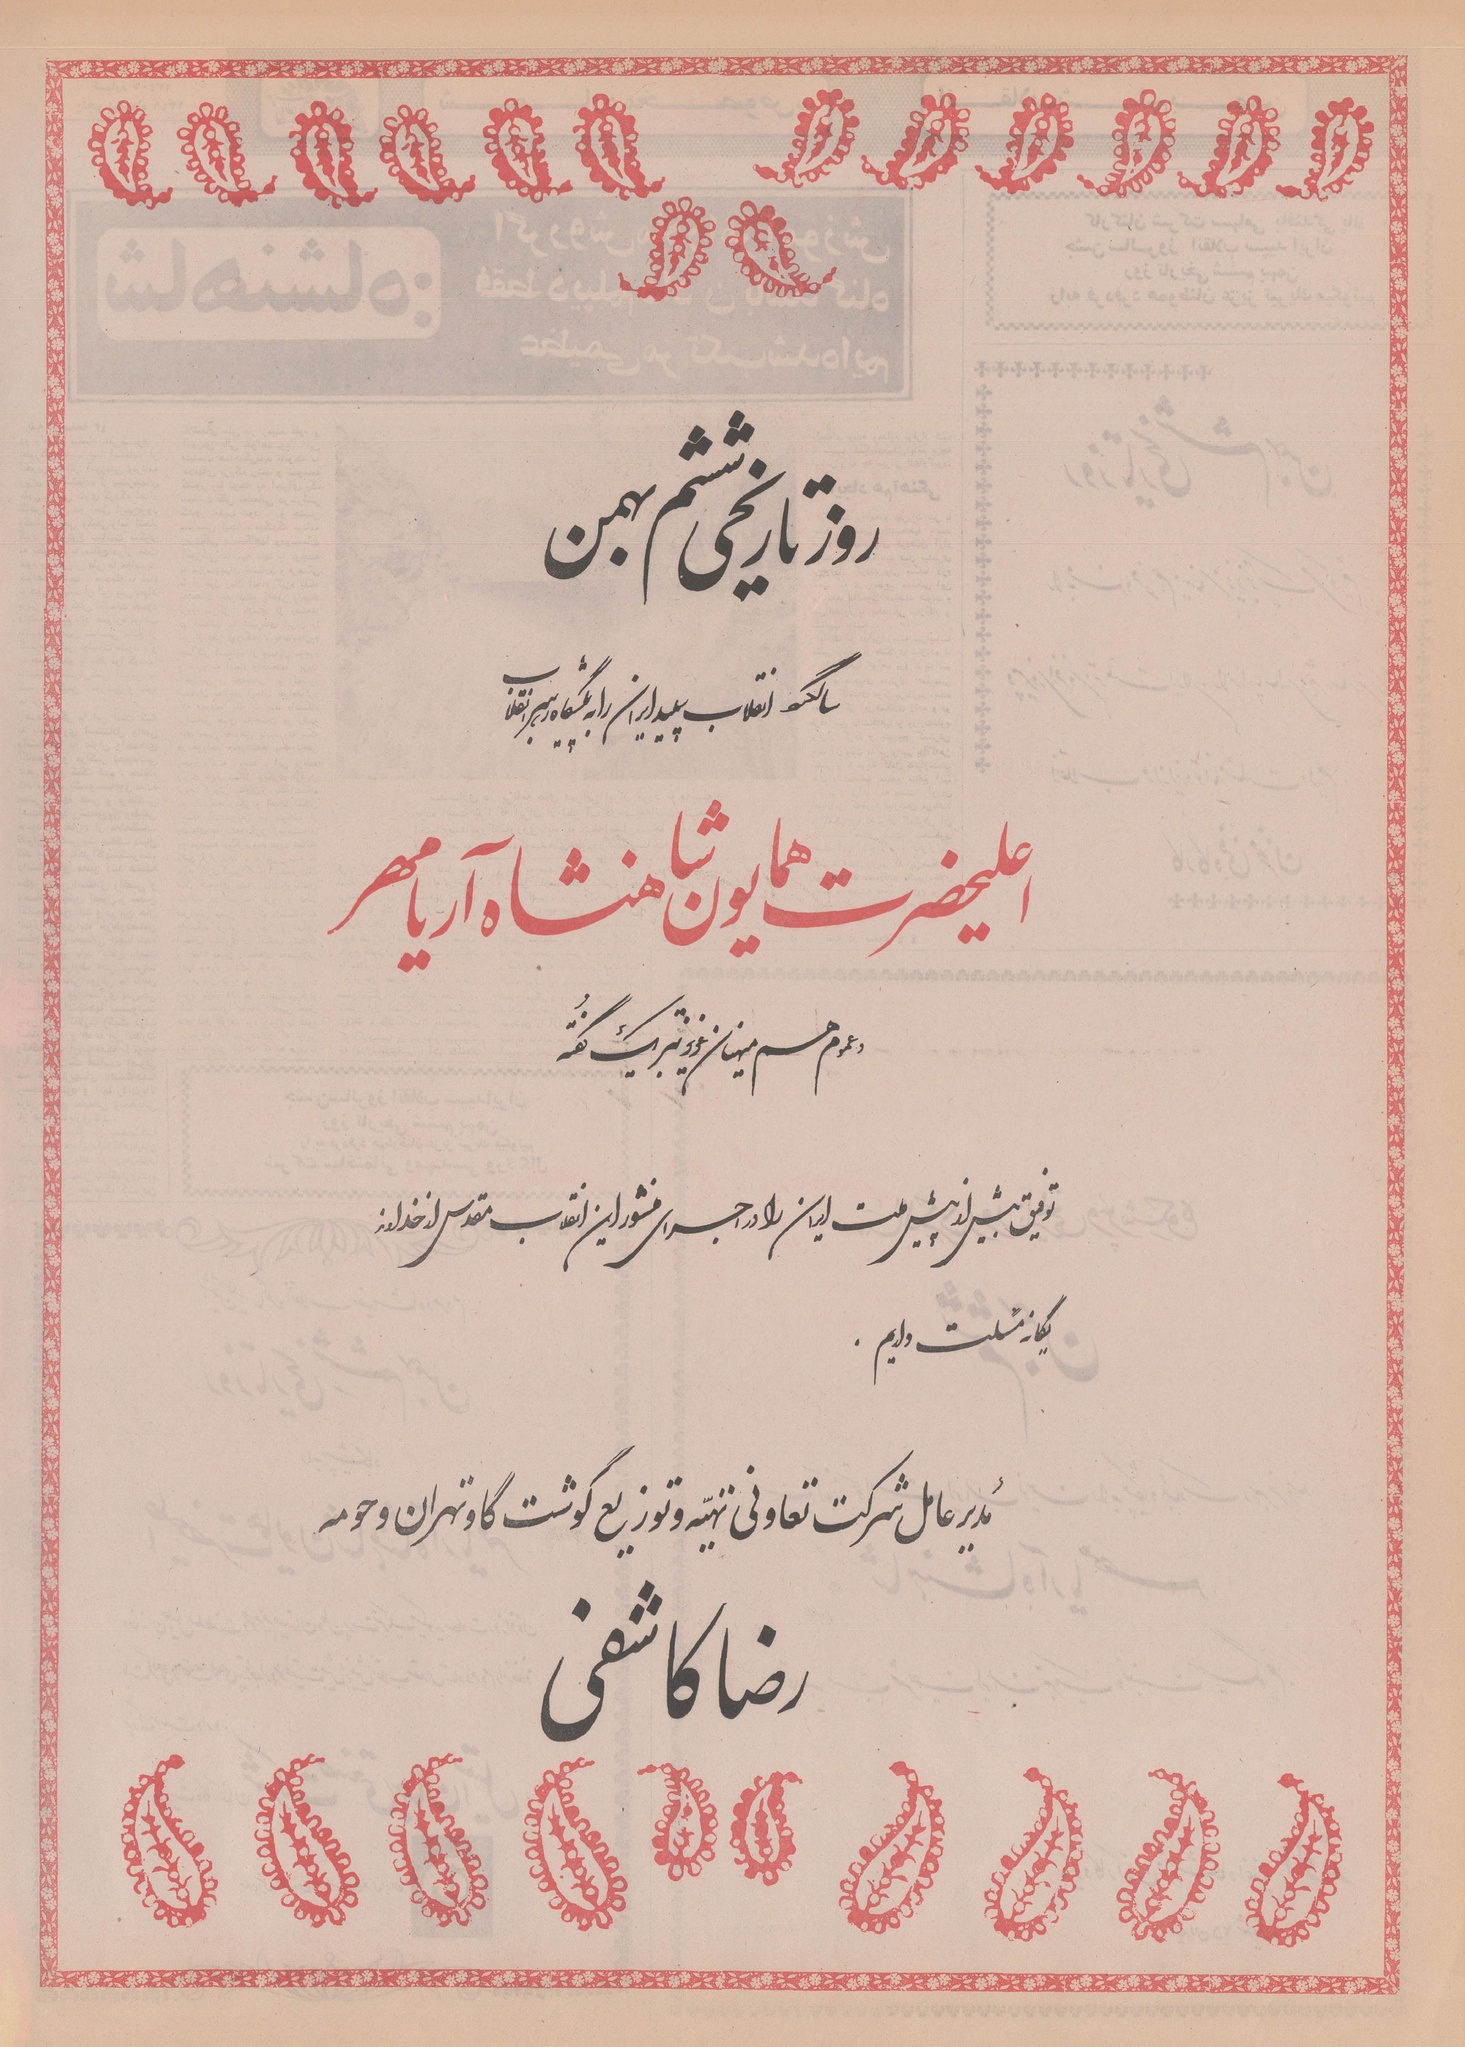 روز تاریخی ششم بهمن
سالگرد انقلاب سپید ایران را به پیشگاه رهبر انقلاب
اعلیحضرت همایون شاهنشاه آریامهر
و عموم هم میهنان عزیز تبریک گفته
توفیق بیش از پیش ملت ایران را در اجرای منشور این انقلاب مقدس از خداوند
یگانه مسئلت داریم .
مدیر عامل شرکت تعاونی تهیّه و توزیع گوشت گاو تهران و حومه
رضا کاشفی